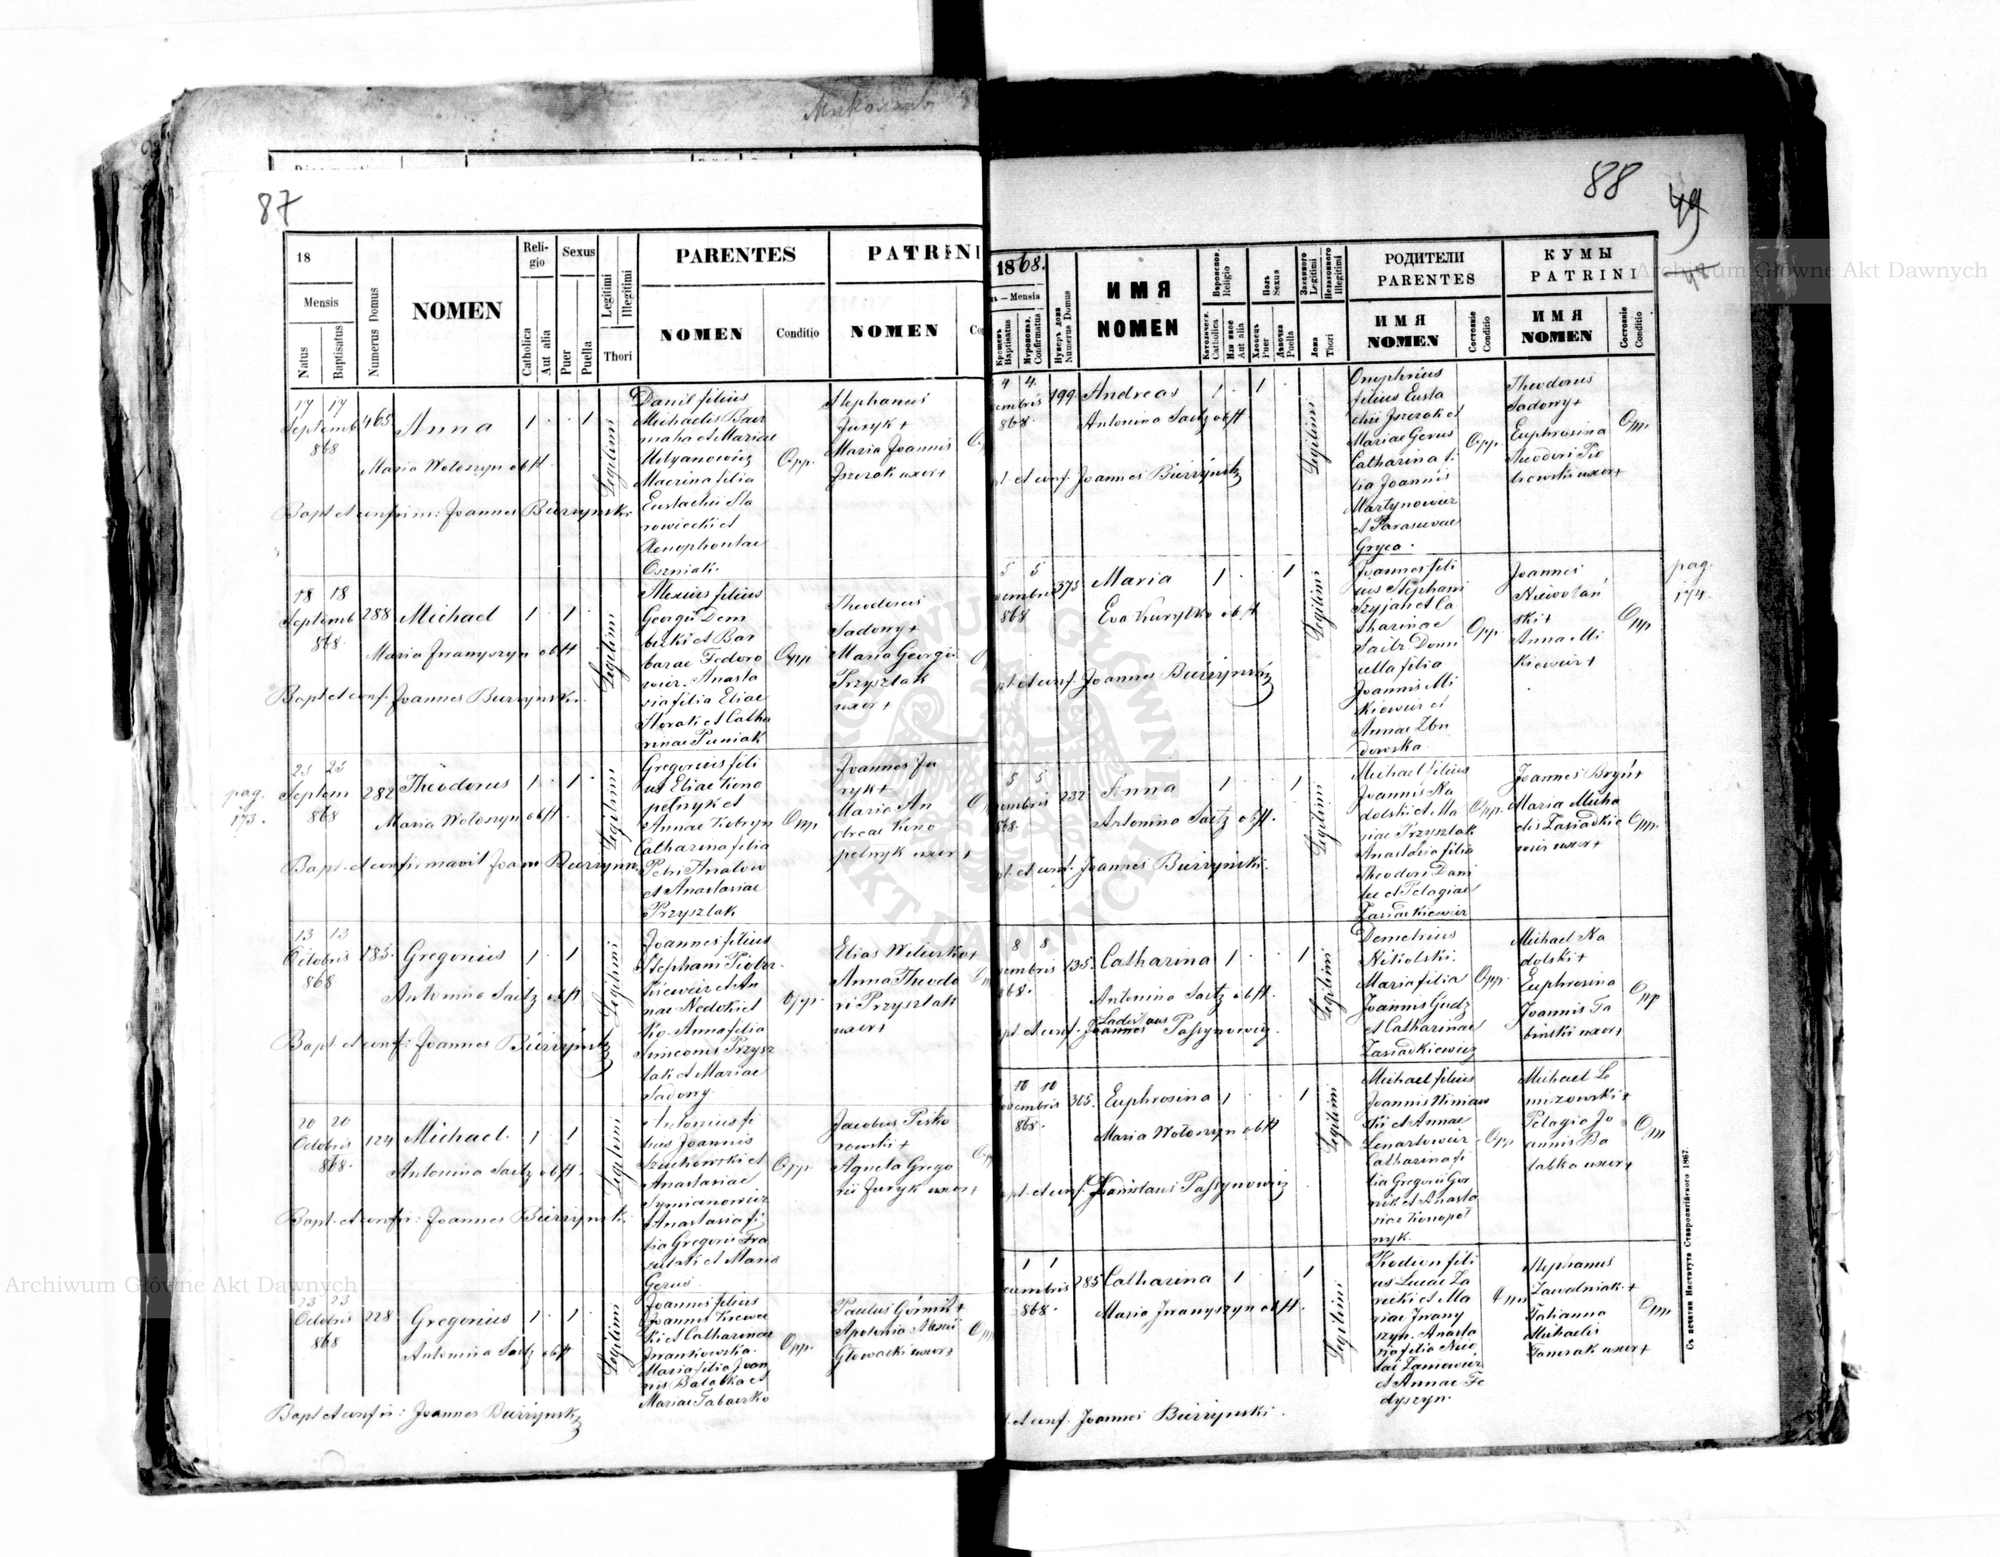 Миколаевъ
87
18
Mensis
Natus
Baptisatus
Numerus Domus
NOMEN
Reli-
gio
Catholica
Aut alia
Sexus
Puer
Puella
Legitimi
Illegitimi
Thori
PARENTES
NOMEN
Conditio
PATRINI
NOMEN
17 17
Septemb
868
465
Anna
1 1
Maria Wołoszyn obst.
Bapt et confirm: Joannes Burzynski
Legitimi
Danil filius
Michaelis
et Mariae
Macrina filia
Eustachii Sta
rowiecki et
Xenophontae
Oszniak
Opp.
Stephanus
Juryk +
Maria Joannis
Jszczak uxor +
18 18
Septemb
868.
288
Michael
1 1
Maria Jwanyszyn obst
Bapt et conf. Joannes Burzynski.
Legitimi
Alexius filius
Georgii Dem
bicki et Bar
barae Fedoro
wicz. Anasta
sia filia Eliae
et Catha
rinae Puniak
Opp
Theodorus
Sadowy +
Maria Georgii
Przysztak
uxor +
pag.
173.
25 25
Septem
868
282
Theodorus
1 1
Maria Wołoszyn obst
Bapt. et confirmavit Joann Burzynn
Legitimi
Gregorius fili
us Eliae Kono
pelnyk et
Annae Kobryn
Catharina filia
Petri
et Anastasiae
Przysztak
Opp
Joannes Ju
ryk +
Maria An
dreae Kono
pelnyk uxor +
13 13
Octobris
868
185.
Gregorius
1 1
Antonina Saitz obst
Bapt et conf: Joannes Burzynski
Legitimi
Joannes filius
Stephani Piotr
kiewicz et An
nae
ko. Anna filia
Simeonis Przysz
tak et Mariae
Sadowy.
Opp.
Elias Wilurko +
Anna Theodo
ri Przysztak
uxor +
20 20
Octobris
868.
124
Michael.
1 1
Antonina Saitz obst.
Bapt. et confir: Joannes Burzynski.
Legitimi
Antonius fi
lius Joannis
Szuchowski et
Anastasiae
Symianowicz
Anastasia fi
lia Gregorii
et Maria
Gerus.
Opp
Jacobus Pisko
rowski +
Agneta Grego
rii Juryk uxor +
23 23
Octobris
868
228
Gregorius
1 1
Antonina Saitz obst
Bapt et confir: Joannes Burzynski
Legitimi
Joannes filius
Joannis
ki et Catharinae
Jwankowska.
Maria filia Joan
nis Balabka et
Mariae
Opp.
Paulus +
Apolonia Alexii
Głowacki uxor +
88
49
1868.
Mensis
Крещенъ
Baptisatus
Мѵропомаз.
Confirmatus
Нумеръ дома
Numerus Domus
ИМЯ
NOMEN
Вѣроиспов.
Religio
Католическ.
Catholica
Или иное
Aut alia
Полъ
Sexus
Хлопецъ
Puer
Дѣвочка
Puella
Законного
Legitimi
Незаконного
Illegitimi
Ложа
Thori
РОДИТЕЛИ
PARENTES
ИМЯ
NOMEN
Состояніе
Conditio
КУМЫ
PATRINI
ИМЯ
NOMEN
Состояніе
Conditio
4 4.
embris
868
199.
Andreas
1 1
Antonina Saitz obst
pt. et conf. Joannes Burzynski
Legitimi
Onuphrius
filius Eusta
chii Jszczak et
Mariae Gerus
Catharina fi
lia Joannis
Martynowicz
et Parascevae
Gryca.
Opp.
Theodorus
Sadowy +
Euphrosina
Theodori Pio
trowski uxor +
Opp.
5 5
embris
868
375
Maria
1 1
Eva Kurytko obst
pt et conf. Joannes Burzynski
Legitimi
Joannes fili
us Stephani
et Ca
tharinae
Saitz. Domi
cella filia
Joannis Mi
kiewicz et
Annae Zbu
dowska.
Opp.
Joannes
Niewolań
ski +
Anna Mi
kiewicz +
Opp
pag.
174.
5 5
embris
868.
232
Anna
1 1
Antonina Saitz obst.
pt. et conf. Joannes Burzynski.
Legitimi
Michael filius
Joannis Na
dolski et Ma
riae Przysztak
Anastasia filia
Theodori Dani
luc et Pelagiae
Zasiadkiewicz
Opp.
Joannes Bryń +
Maria Micha
elis Zasiadkie
wicz uxor +
Opp.
8 8
embris
868.
135.
Catharina
1 1
Antonina Saitz obst.
pt et conf. Joannes Ladislaus Passynowicz.
Legitimi
Demetrius
Nikolski.
Maria filia
Joannis Gudz
et Catharinae
Zasiadkiewicz
Opp.
Michael Na
dolski +
Euphrosina
Joannis Ta
binski uxor +
Opp
10 10
ovembris
868.
365.
Euphrosina
1 1
Maria Wołoszyn obst
pt. et conf. Stanislaus Passynowicz
Legitimi
Michael filius
Joannis Winiaw
ski et Annae
Lenartowicz
Catharina fi
lia Gregorii Gor
nik et Anasta
siae Konopel
nyk.
Opp
Michael Le
mizowski +
Pelagia Jo
annis Ba
labka uxor +
Opp
1 1
cembris
868.
285
Catharina
1 1
Maria Jwanyszyn obst.
t. et conf. Joannes Burzynski.
Legitimi
Rodion fili
us Lucae Za
recki et Ma
riae Jwany
szyn. Anasta
sia filia Nico
lai Zaniewicz
et Annae Fe
dyszyn.
Opp
Stephanus
Zawadniak +
Tatianna
Michaelis
uxor +
Opp
Съ печатни Института Ставропигійского 1867.
Archiwum Główne Akt Dawnych
ARCHIWUM GŁÓWNE AKT DAWNYCH
Archiwum Główne Akt Dawnych